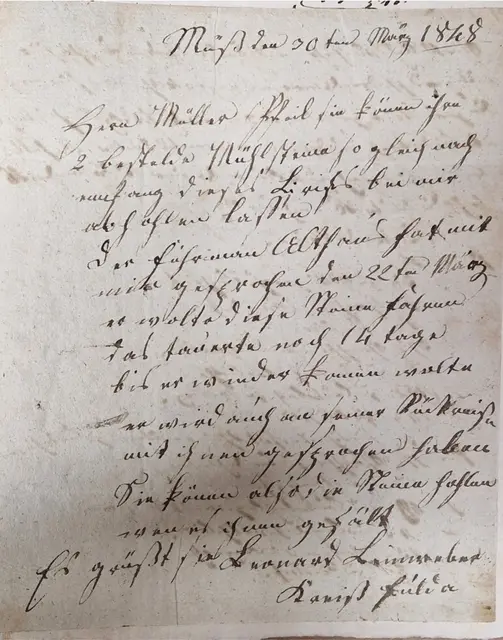 Müß den 30ten März 1848
Herrn Müller Pfeil sie könen ihre
2 bestelde Mühlsteine so gleich nach
emfang dieses Brifes bei mir
abhohlen lassen
der fuhrman Althaus hat mit
mir gesprochen den 22ten März
er wolte diese Steine fahren
das tauerte noch 14 tage
bis er wieder komen wolte
er wird auch an seiner Rückreise
mit ihnen gesprochen haben
Sie könen also die Steine hohlen
wen es ihnen gefält
Es grüßt sie Leonard Leinweber
Kreiß fulda